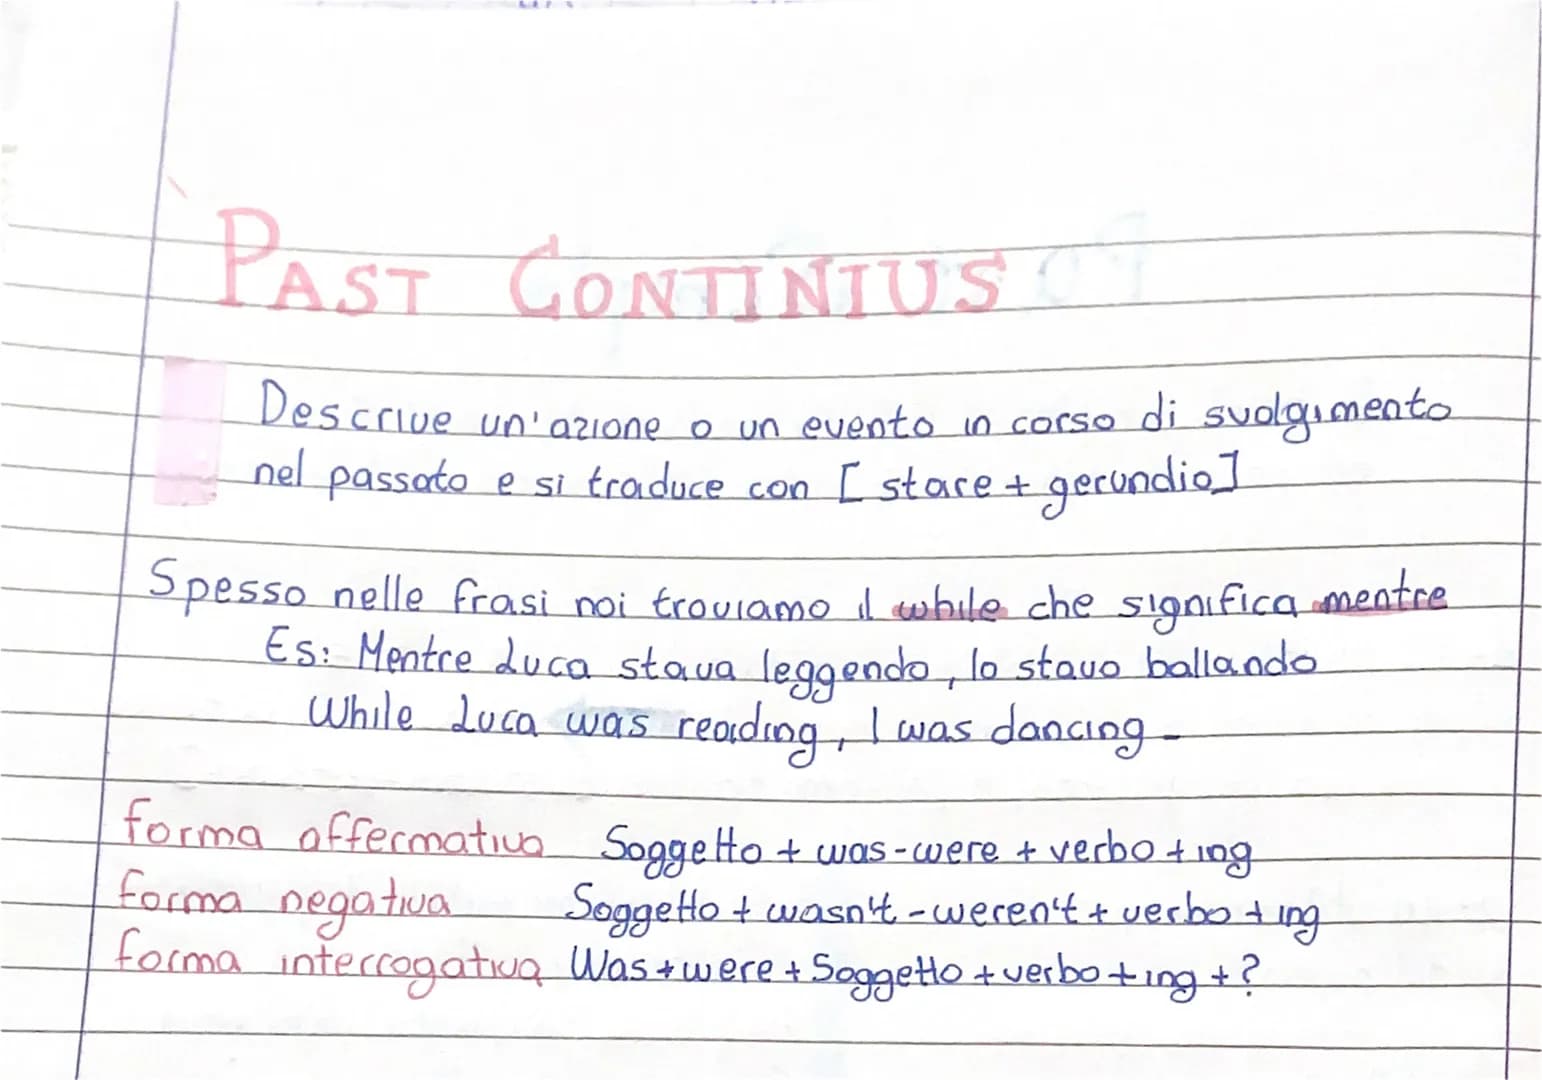 PAST CONTINIUS
Descrive un'azione o un evento in corso di svolgimento
nel passato e si traduce con [stare + gerundio]
Spesso nelle frasi noi troviamo il while che significa mentre
Es: Mentre Luca stava leggendo, Io stavo ballando
While Luca was reading, I was dancing.
forma affermativa Soggetto + was-were + verbo + ing
forma negativa Soggetto + wasn't - weren't + verbo + ing
forma interrogativa Was + were + Soggetto + verbo + ing + ?